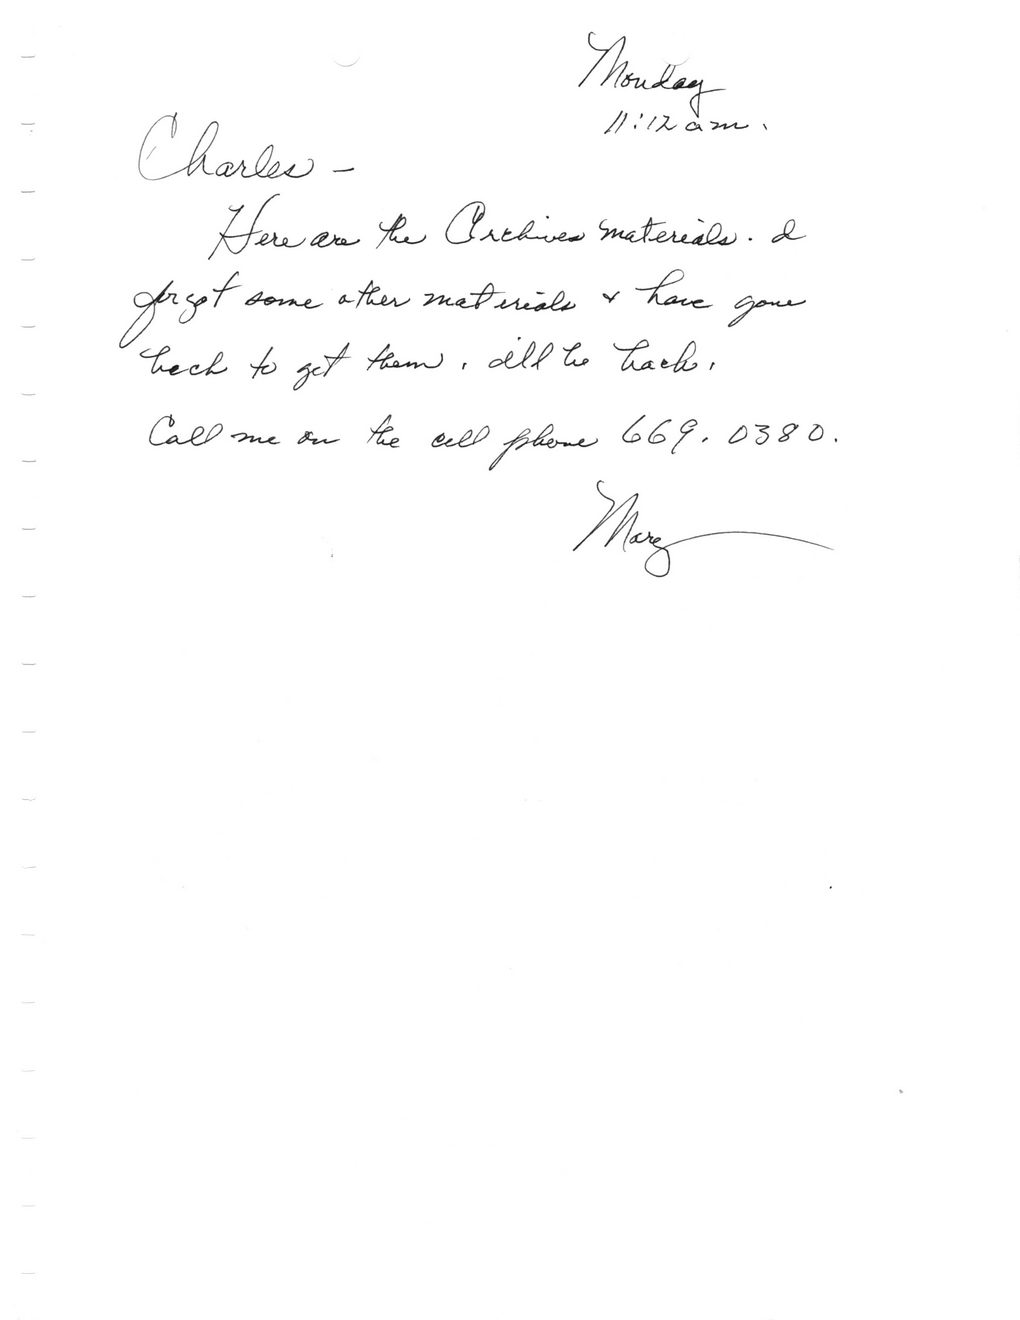 Monday
11:12 am.
Charles -
Here are the Archives materials. I
forgot some other materials & have gone
back to get them. I'll be back.
Call me on the cell phone 669.0380.
Marg